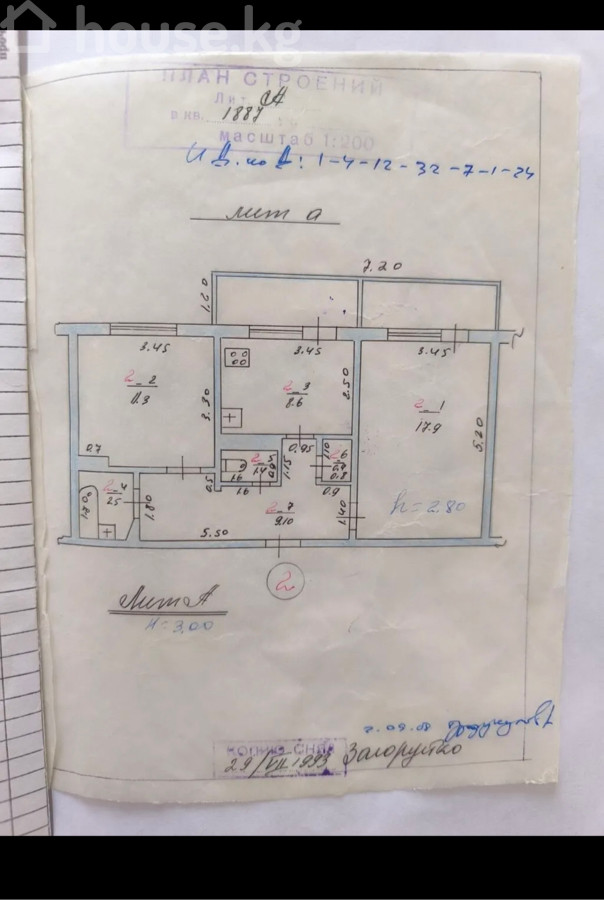 house.kg
ПЛАН СТРОЕНИЙ
Лит А
в кв. 1887
масштаб 1:200
И Д. но А: 1-4-12-32-7-1-24
лит а
7.20
1.20
3.45
3.45
3.45
2-2
11.3
3.30
2-3
8.6
2.50
2-1
17.9
5.20
0.7
0.95
1.15
2-4
2.5
1.80
0.5
1.6
1.6
1.4
2-6
0.7
0.8
0.9
2-7
9.10
1.40
h = 2.80
5.50
2
Лит А
H = 3.00
КОПИЮ СНЯЛ
29/VII 1993 Загорулько